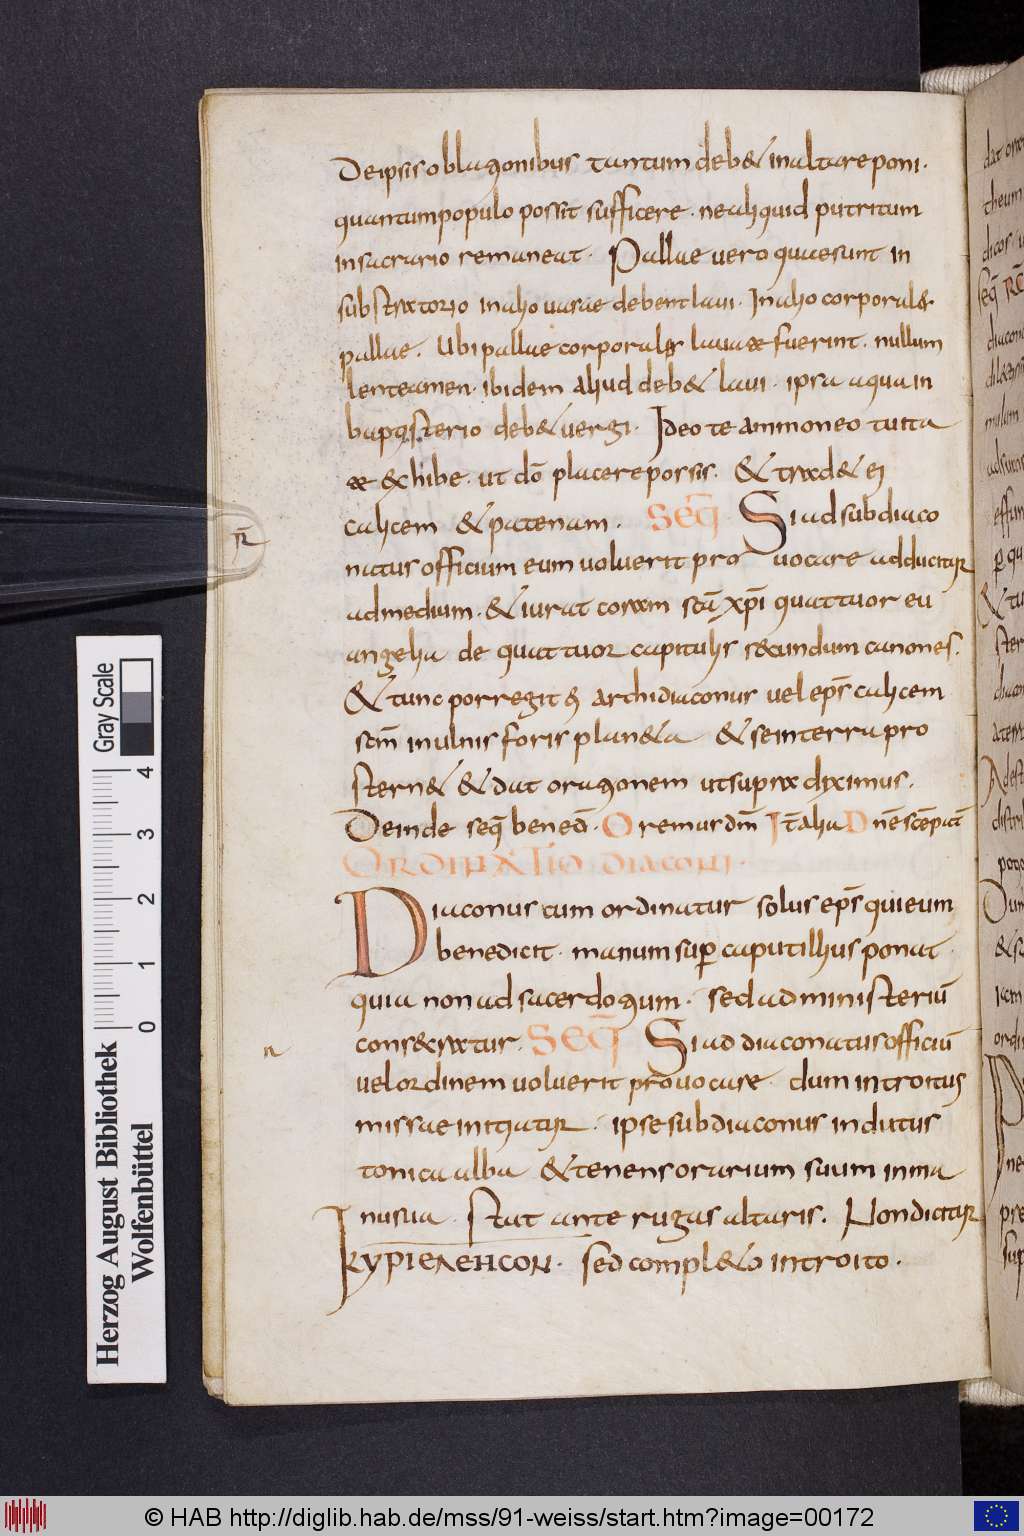 De ipsis oblationibus tantum deb& inaltare poni.
quantum populo possit sufficere. ne aliquid putritum
insacrario remaneat. Pallae vero quae sunt in
substratorio inalio vasae debent lavi. In alio corporal&
pallae. Ubi pallae corporales lavatae fuerint. nullum
lenteamen. ibidem aliud deb& lavi. ipsa aqua in
baptisterio deb& vergi. Ideo te ammoneo tu ita
te exhibe. ut dō placere possis. & trad& ei
calicem & patenam. Seq̄ Si ad subdiaco
natus officium eum voluerit provocare adducitur
ad medium. & iurat coram scā xpī quattuor eu
angelia de quattuor capitulis secundum canones.
& tunc porregit ei archidiaconus vel eps̄ calicem
scm̄ inulnis foris plan&a & se interra pro
stern& & dat orationem ut supra diximus.
Deinde seq̄ bened. Oremus dm̄ It̄ alia Dnē scē pat
ORDINATIO DIACONI.
Diaconus cum ordinatur solus eps̄ qui eum
benedicit. manum sup̱ caput illius ponat
quia non ad sacerdotium. sed ad ministeriū
consecratur. SEQ̄ Si ad diaconatus officiū
vel ordinem voluerit provocare. dum introitus
missae initiatur. ipse subdiaconus indutus
tonica alba & tenens orarium suum inma
nu sua. Stat ante rugas altaris. Non dicitur
KYPIEΛEHCON. sed compl&o introito.
Herzog August Bibliothek
Wolfenbüttel
Gray Scale
0 1 2 3 4
© HAB http://diglib.hab.de/mss/91-weiss/start.htm?image=00172